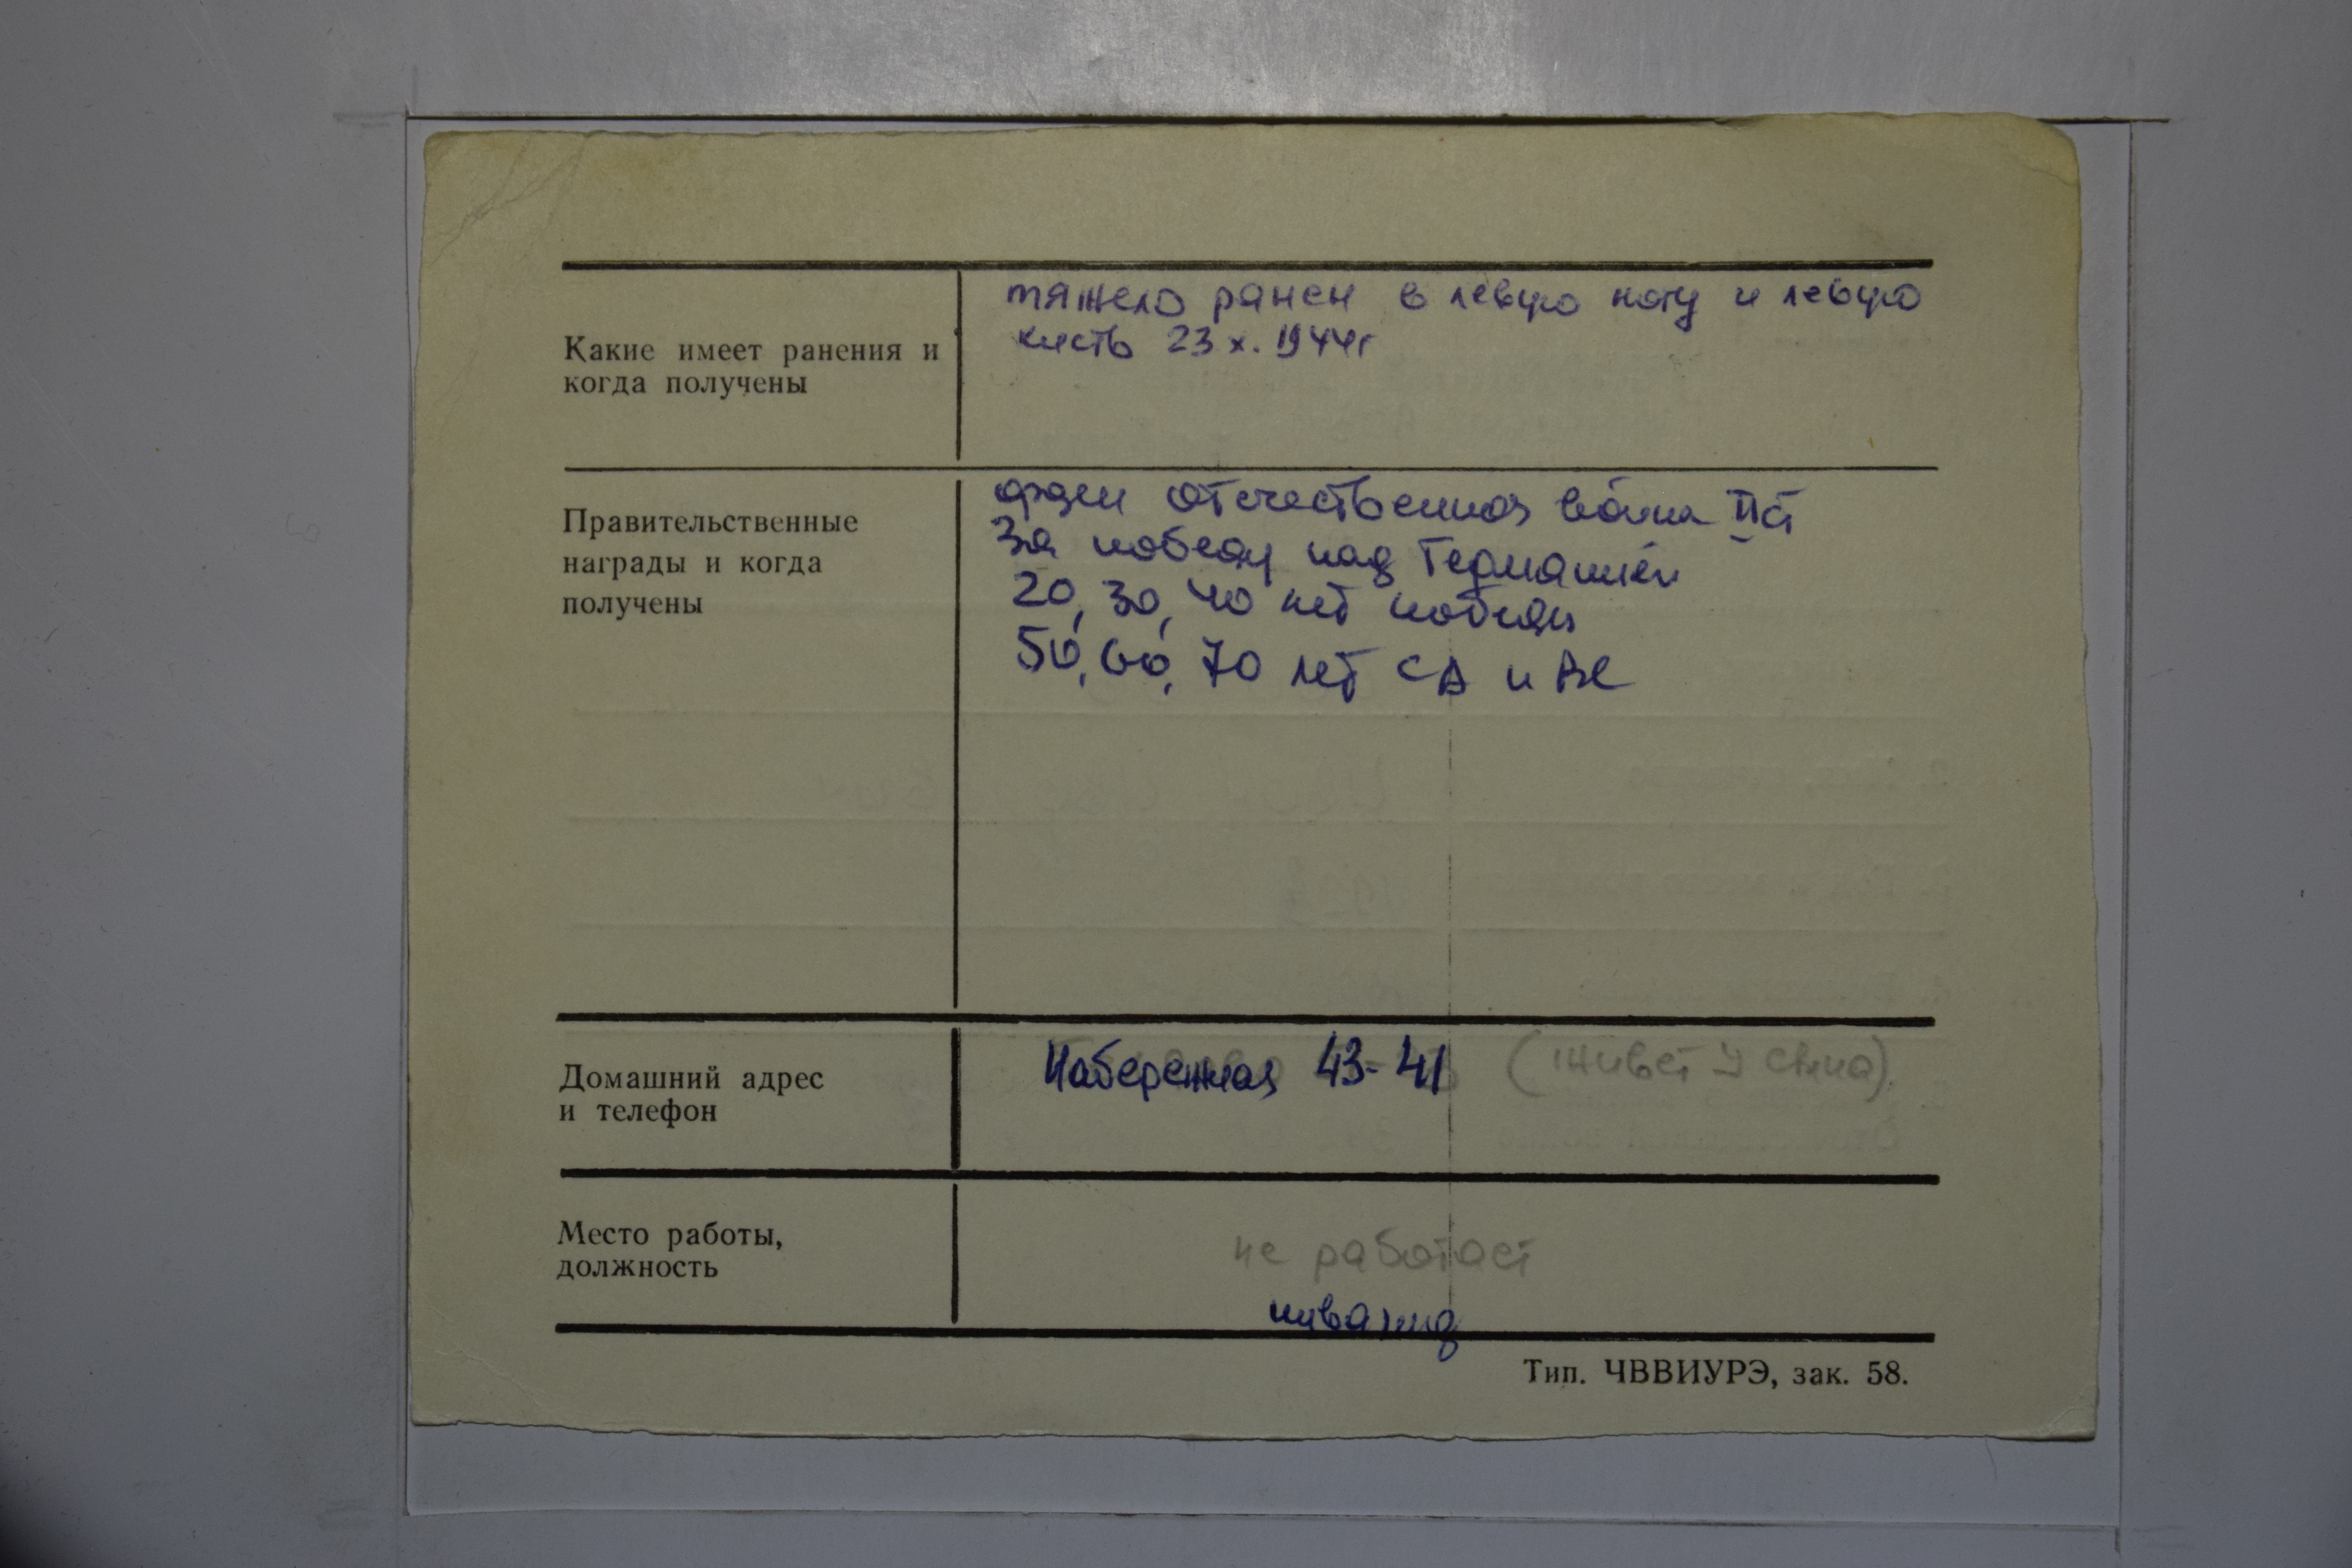 Какие имеет ранения и
когда получены
тяжело ранен в левую ногу и левую
кисть 23 х. 1944г
Правительственные
награды и когда
получены
орден отечественная война II ст
За победу над Германией
20, 30, 40 лет победы
50, 60, 70 лет СА и ВС
Домашний адрес
и телефон
Набережная 43-41 (живет у сына)
Место работы,
должность
не работает
инвалид
Тип. ЧВВИУРЭ, зак. 58.